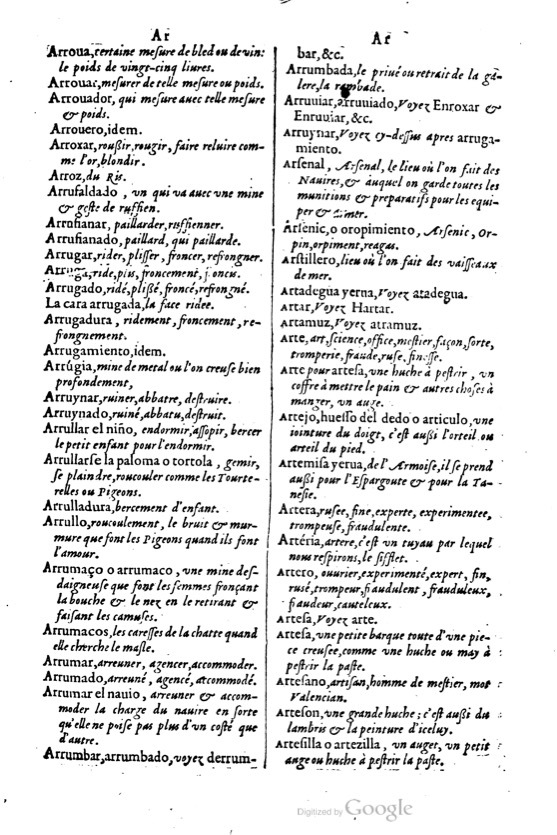 Ar
Arroua, certaine mesure de bled ou de vin:
le poids de vingt-cinq liures.
Arrouar, mesurer de telle mesure ou poids.
Arrouador, qui mesure auec telle mesure
& poids.
Arrouero, idem.
Arroxar, roußir, rougir, faire reluire com-
me l'or, blondir.
Arroz, du Ris.
Arrufaldado, vn qui va auec vne mine
& geste de ruffien.
Arrufianar, paillarder, ruffienner.
Arrufianado, paillard, qui paillarde.
Arrugar, rider, plisser, froncer, refrongner.
Arruga, ride, plis, froncement, froncis.
Arrugado, ridé, plißé, froncé, refrongné.
La cara arrugada, la face ridee.
Arrugadura, ridement, froncement, re-
frongnement.
Arrugamiento, idem.
Arrúgia, mine de metal ou l'on creuse bien
profondement,
Arruynar, ruiner, abbatre, destruire.
Arruynado, ruiné, abbatu, destruit.
Arrullar el niño, endormir, assopir, bercer
le petit enfant pour l'endormir.
Arrullarſe la paloma o tortola, gemir,
se plaindre, roucouler comme les Tourte-
relles ou Pigeons.
Arrulladura, bercement d'enfant.
Arrullo, roucoulement, le bruit & mur-
mure que font les Pigeons quand ils font
l'amour.
Arrumaço o arrumaco, vne mine des-
daigneuse que font les femmes fronçant
la bouche & le nez en le retirant &
faisant les camuses.
Arrumacos, les caresses de la chatte quand
elle cherche le masle.
Arrumar, arreuner, agencer, accommoder.
Arrumado, arreuné, agencé, accommodé.
Arrumar el nauio, arreuner & accom-
moder la charge du nauire en sorte
qu'elle ne poise pas plus d'vn costé que
d'autre.
Arrumbar, arrumbado, voyez derrum-
Ar
bar, &c.
Arrumbada, le priué ou retrait de la ga-
lere, la rambade.
Arruuiar, arruuiado, Voyez Enroxar &
Enruuiar, &c.
Arruynar, Voyez cy-dessus apres arruga-
miento.
Arſenal, Arsenal, le lieu où l'on fait des
Nauires, & auquel on garde toutes les
munitions & preparatifs pour les equi-
per & armer.
Arſénic, o oropimiento, Arsenic, Or-
pin, orpiment, reagas.
Arſtillero, lieu où l'on fait des vaisseaux
de mer.
Artadegua yerna, Voyez atadegua.
Artar, Voyez Hartar.
Artamuz, Voyez atramuz.
Arte, art, science, office, mestier, façon, sorte,
tromperie, fraude, ruse, finesse.
Arte por arteſa, vne huche à pestrir, vn
coffre à mettre le pain & autres choses à
manger, vn auge.
Artejo, hueſſo del dedo o articulo, vne
iointure du doigt, c'est außi l'orteil ou
arteil du pied.
Artemiſa yerua, de l'Armoise, il se prend
außi pour l'Espargoute & pour la Ta-
nesie.
Artera, rusee, fine, experte, experimentee,
trompeuse, fraudulente.
Artéria, artere, c'est vn tuyau par lequel
nous respirons, le sifflet.
Artero, ouurier, experimenté, expert, fin,
rusé, trompeur, fraudulent, frauduleux,
fraudeur, cauteleux.
Arteſa, Voyez arte.
Arteſa, vne petite barque toute d'vne pie-
ce creusee, comme vne huche ou may à
pestrir la paste.
Arteſano, artisan, homme de mestier, mot
Valencian.
Arteſon, vne grande huche; c'est außi du
lambris & la peinture d'iceluy.
Arteſilla o artezilla, vn auget, vn petit
auge ou huche à pestrir la paste.
Digitized by Google